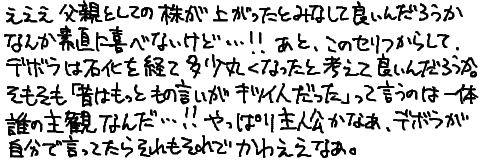 えええ 父親としての株が上がったとみなして良いんだろうか
なんか素直に喜べないけど…!! あと、このセリフからして、
デボラは石化を経て、多少丸くなったと考えて良いんだろうか。
そもそも「昔はもっともの言いがキツイ人だった」って言うのは一体
誰の主観なんだ…!! やっぱり主人公かなあ、デボラが
自分で言ってたらそれもそれでかわええなあ。